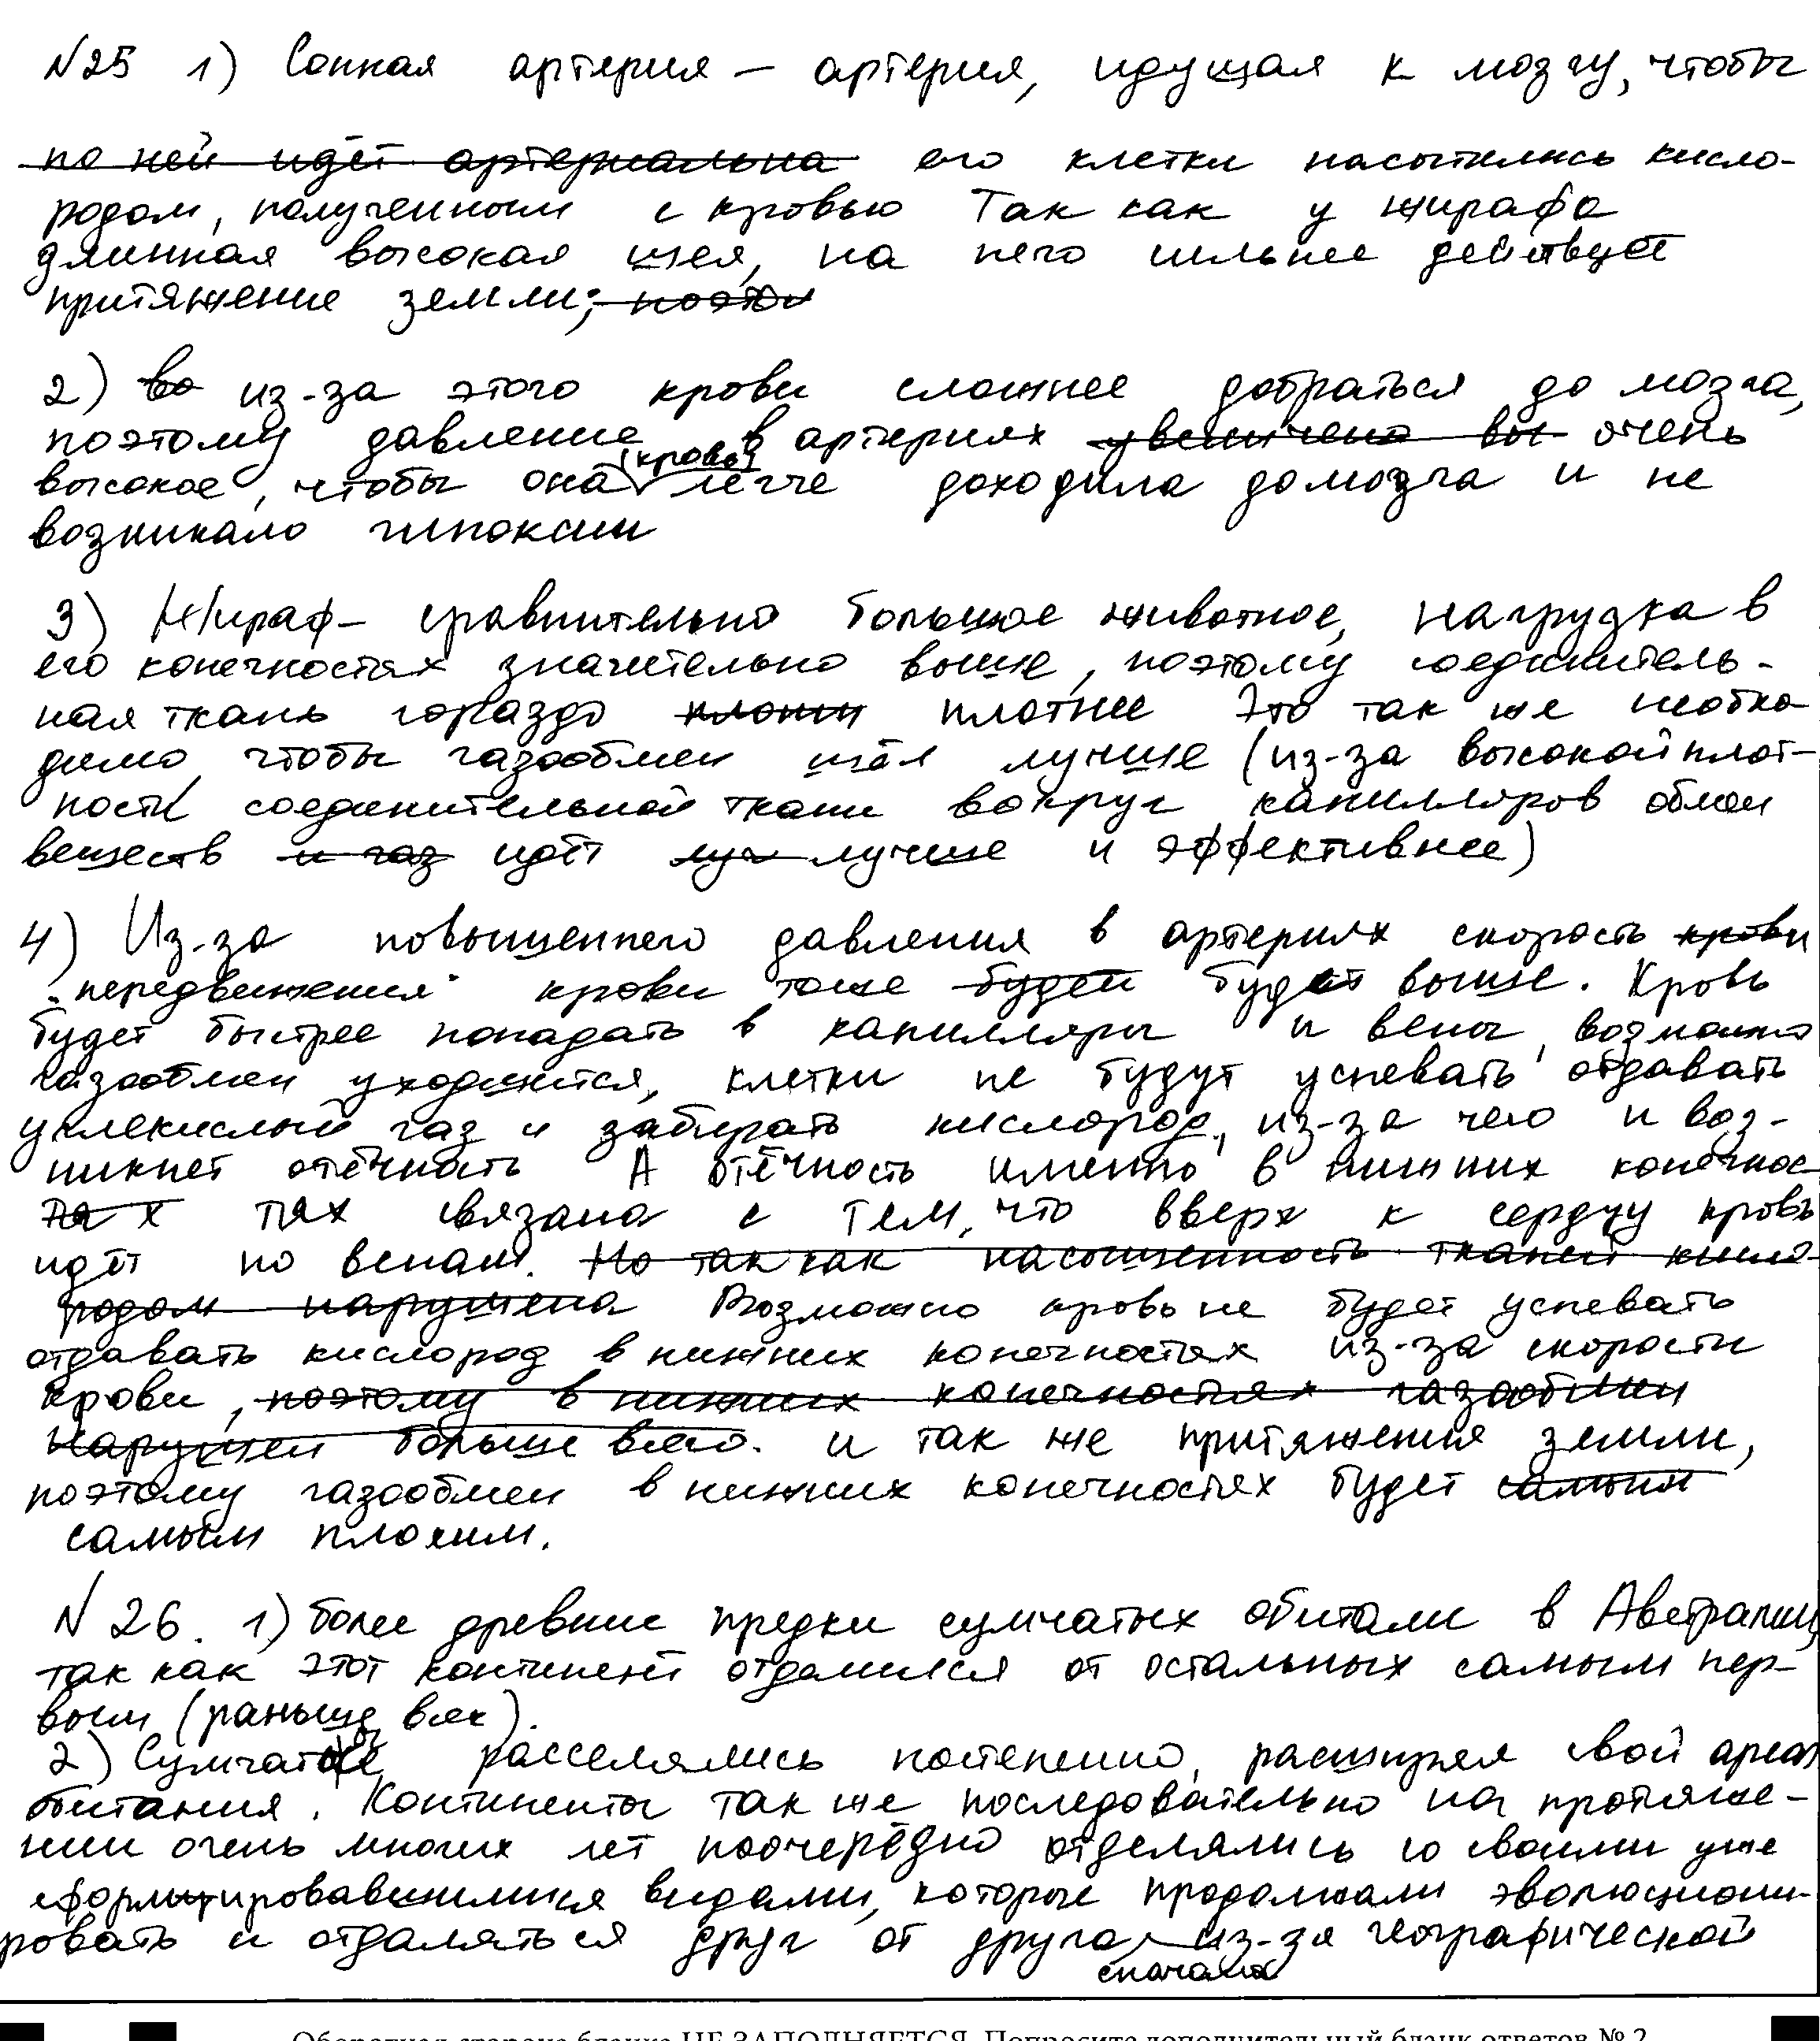 №25 1) Сонная артерия – артерия, идущая к мозгу, чтобы
по ней идёт артериальна его клетки насытились кисло-
родом, полученным с кровью Так как у жирафа
длинная высокая шея, на него сильнее действует
притяжение земли; поэто
2) во из-за этого крови сложнее добраться до мозга,
поэтому давление в артериях увеличено вы очень
высокое, чтобы она (кровь) легче доходила до мозга и не
возникало гипоксии
3) Жираф – сравнительно большое животное, нагрузка в
его конечностях значительно выше, поэтому соединитель-
ная ткань гораздо плотн плотнее Это так же необхо
димо, чтобы газообмен шёл лучше (из-за высокой плот-
ности соединительной ткани вокруг капилляров обмен
веществ и газ идёт луч лучше и эффективнее)
4) Из-за повышенного давления в артериях скорость крови
"передвижения" крови тоже будет будет выше. Кровь
будет быстрее попадать в капилляры и вены, возможно
газообмен ухудшится, клетки не будут успевать отдавать
углекислый газ и забирать кислород, из-за чего и воз-
никнет отёчность А отёчность именно в нижних конечнос
тях тях связана с тем, что вверх к сердцу кровь
идёт по венам. Но так как насыщенность тканей кисло-
родом нарушена Возможно кровь не будет успевать
отдавать кислород в нижних конечностях из-за скорости
крови, поэтому в нижних конечностях газообмен
нарушен больше всего. и так же притяжения земли,
поэтому газообмен в нижних конечностях будет самым
самым плохим.
№ 26. 1) более древние предки сумчатых обитали в Австралии,
так как этот континент отделился от остальных самым пер-
вым (раньше всех).
2) Сумчатые расселялись постепенно, расширяя свой ареал
обитания. Континенты так же последовательно на протяже-
нии очень многих лет поочерёдно отделялись со своими уже
сформировавшимися видами, которые продолжали эволюциони-
ровать и отдаляться друг от друга из-за географической
сначала
Оборотная сторона бланка НЕ ЗАПОЛНЯЕТСЯ. Попросите дополнительный бланк ответов № 2